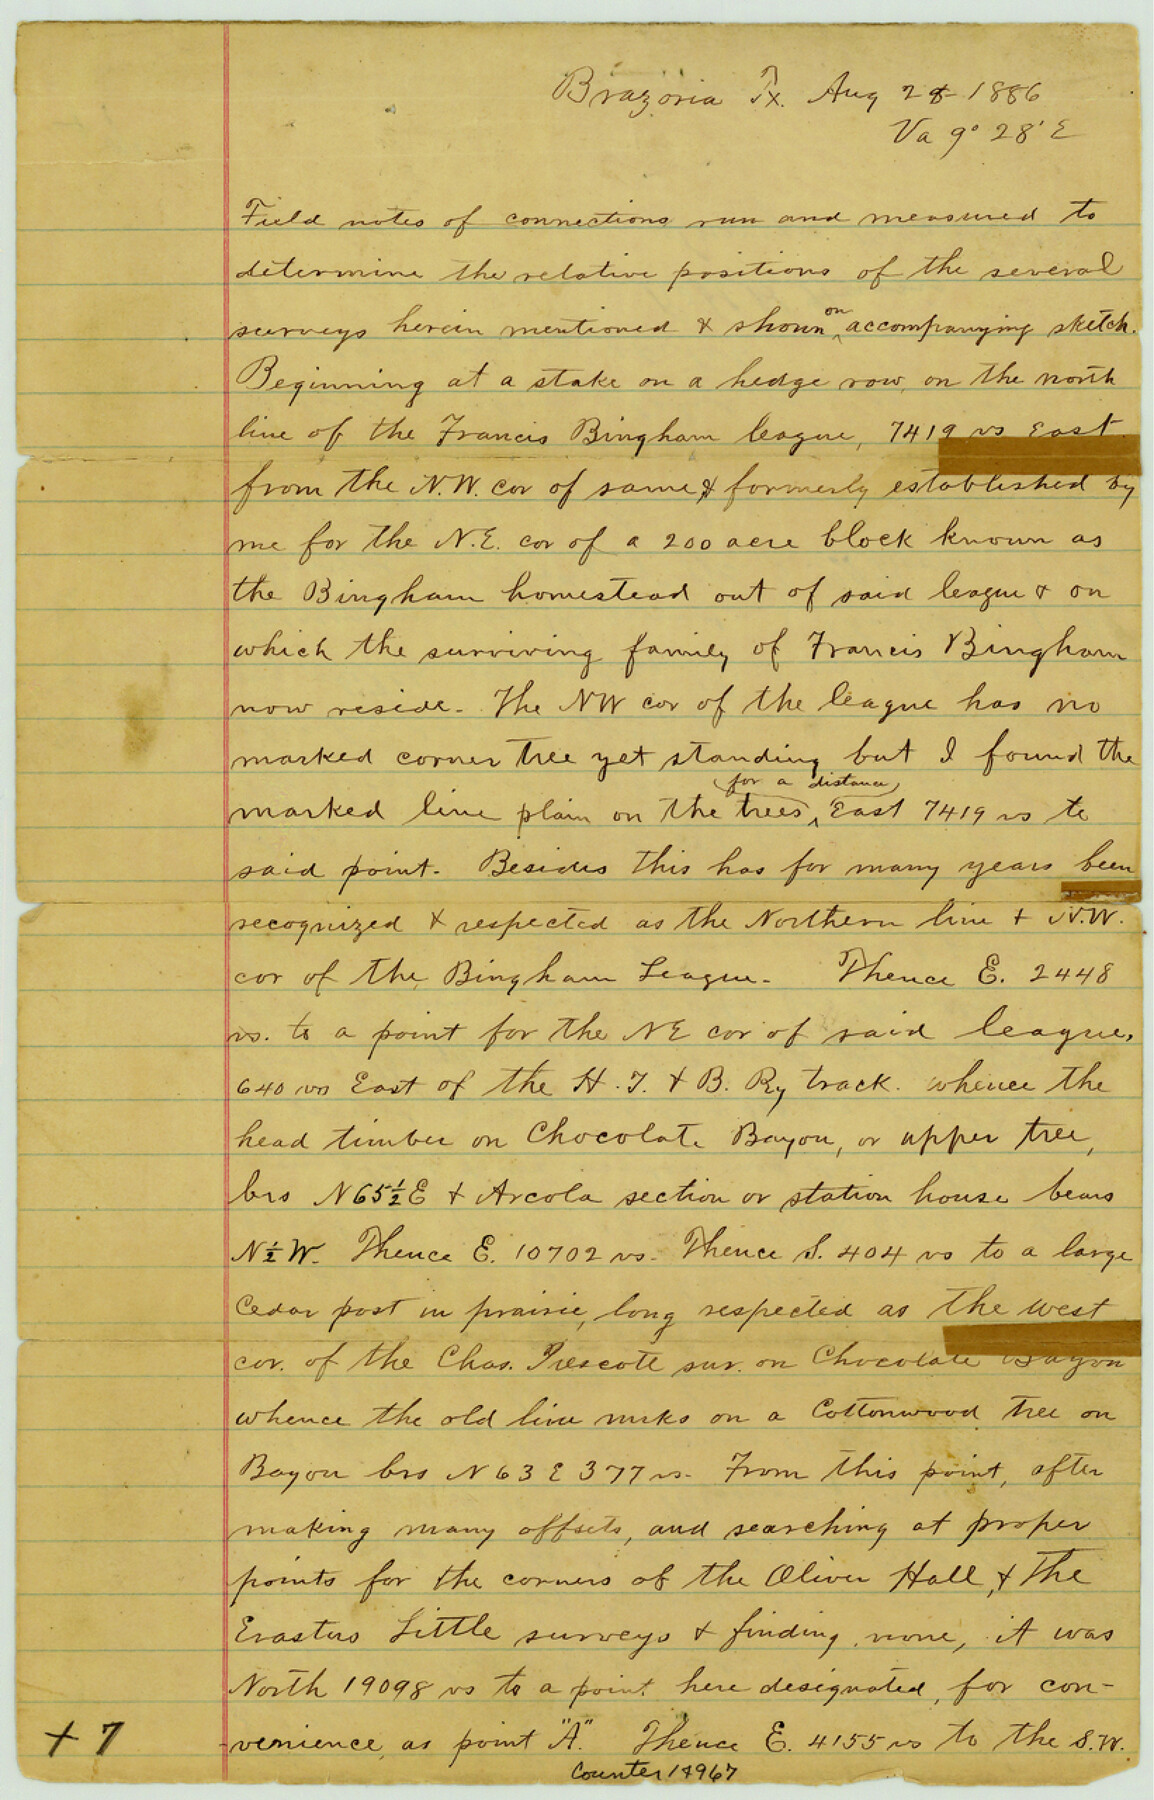 Brazoria Tx. Aug 28 1886
Va 9° 28' E
Field notes of connections run and measured to
determine the relative positions of the several
surveys herein mentioned & shown on accompanying sketch.
Beginning at a stake on a hedge row, on the north
line of the Francis Bingham league, 7419 vs East
from the N.W. cor of same, & formerly established by
me for the N.E. cor of a 200 acre block known as
the Bingham homestead out of said league & on
which the surviving family of Francis Bingham
now reside. The NW cor of the league has no
marked corner tree yet standing but I found the
marked line plain on the trees, (for a distance) East 7419 vs to
said point. Besides this has for many years been
recognized & respected as the Northern line & N.W.
cor of the Bingham League. Thence E. 2448
vs. to a point for the NE cor of said league,
640 vrs East of the H. T. & B. Ry track. whence the
head timber on Chocolate Bayou, or upper tree,
brs N65½E & Arcola section or station house bears
N½W. Thence E. 10702 vs. Thence S. 404 vs to a large
Cedar post in prairie, long respected as the west
cor. of the Chas. Prescott sur. on Chocolate Bayou
whence the old line mrks on a Cottonwood tree on
Bayou brs N63E 377 vs. From this point, after
making many offsets, and searching at proper
points for the corners of the Oliver Hall, & the
Erastus Little surveys & finding none, it was
North 19098 vs to a point here designated, for con-
venience, as point "A". Thence E. 4155 vs to the S.W.
+ 7
Counter 14967